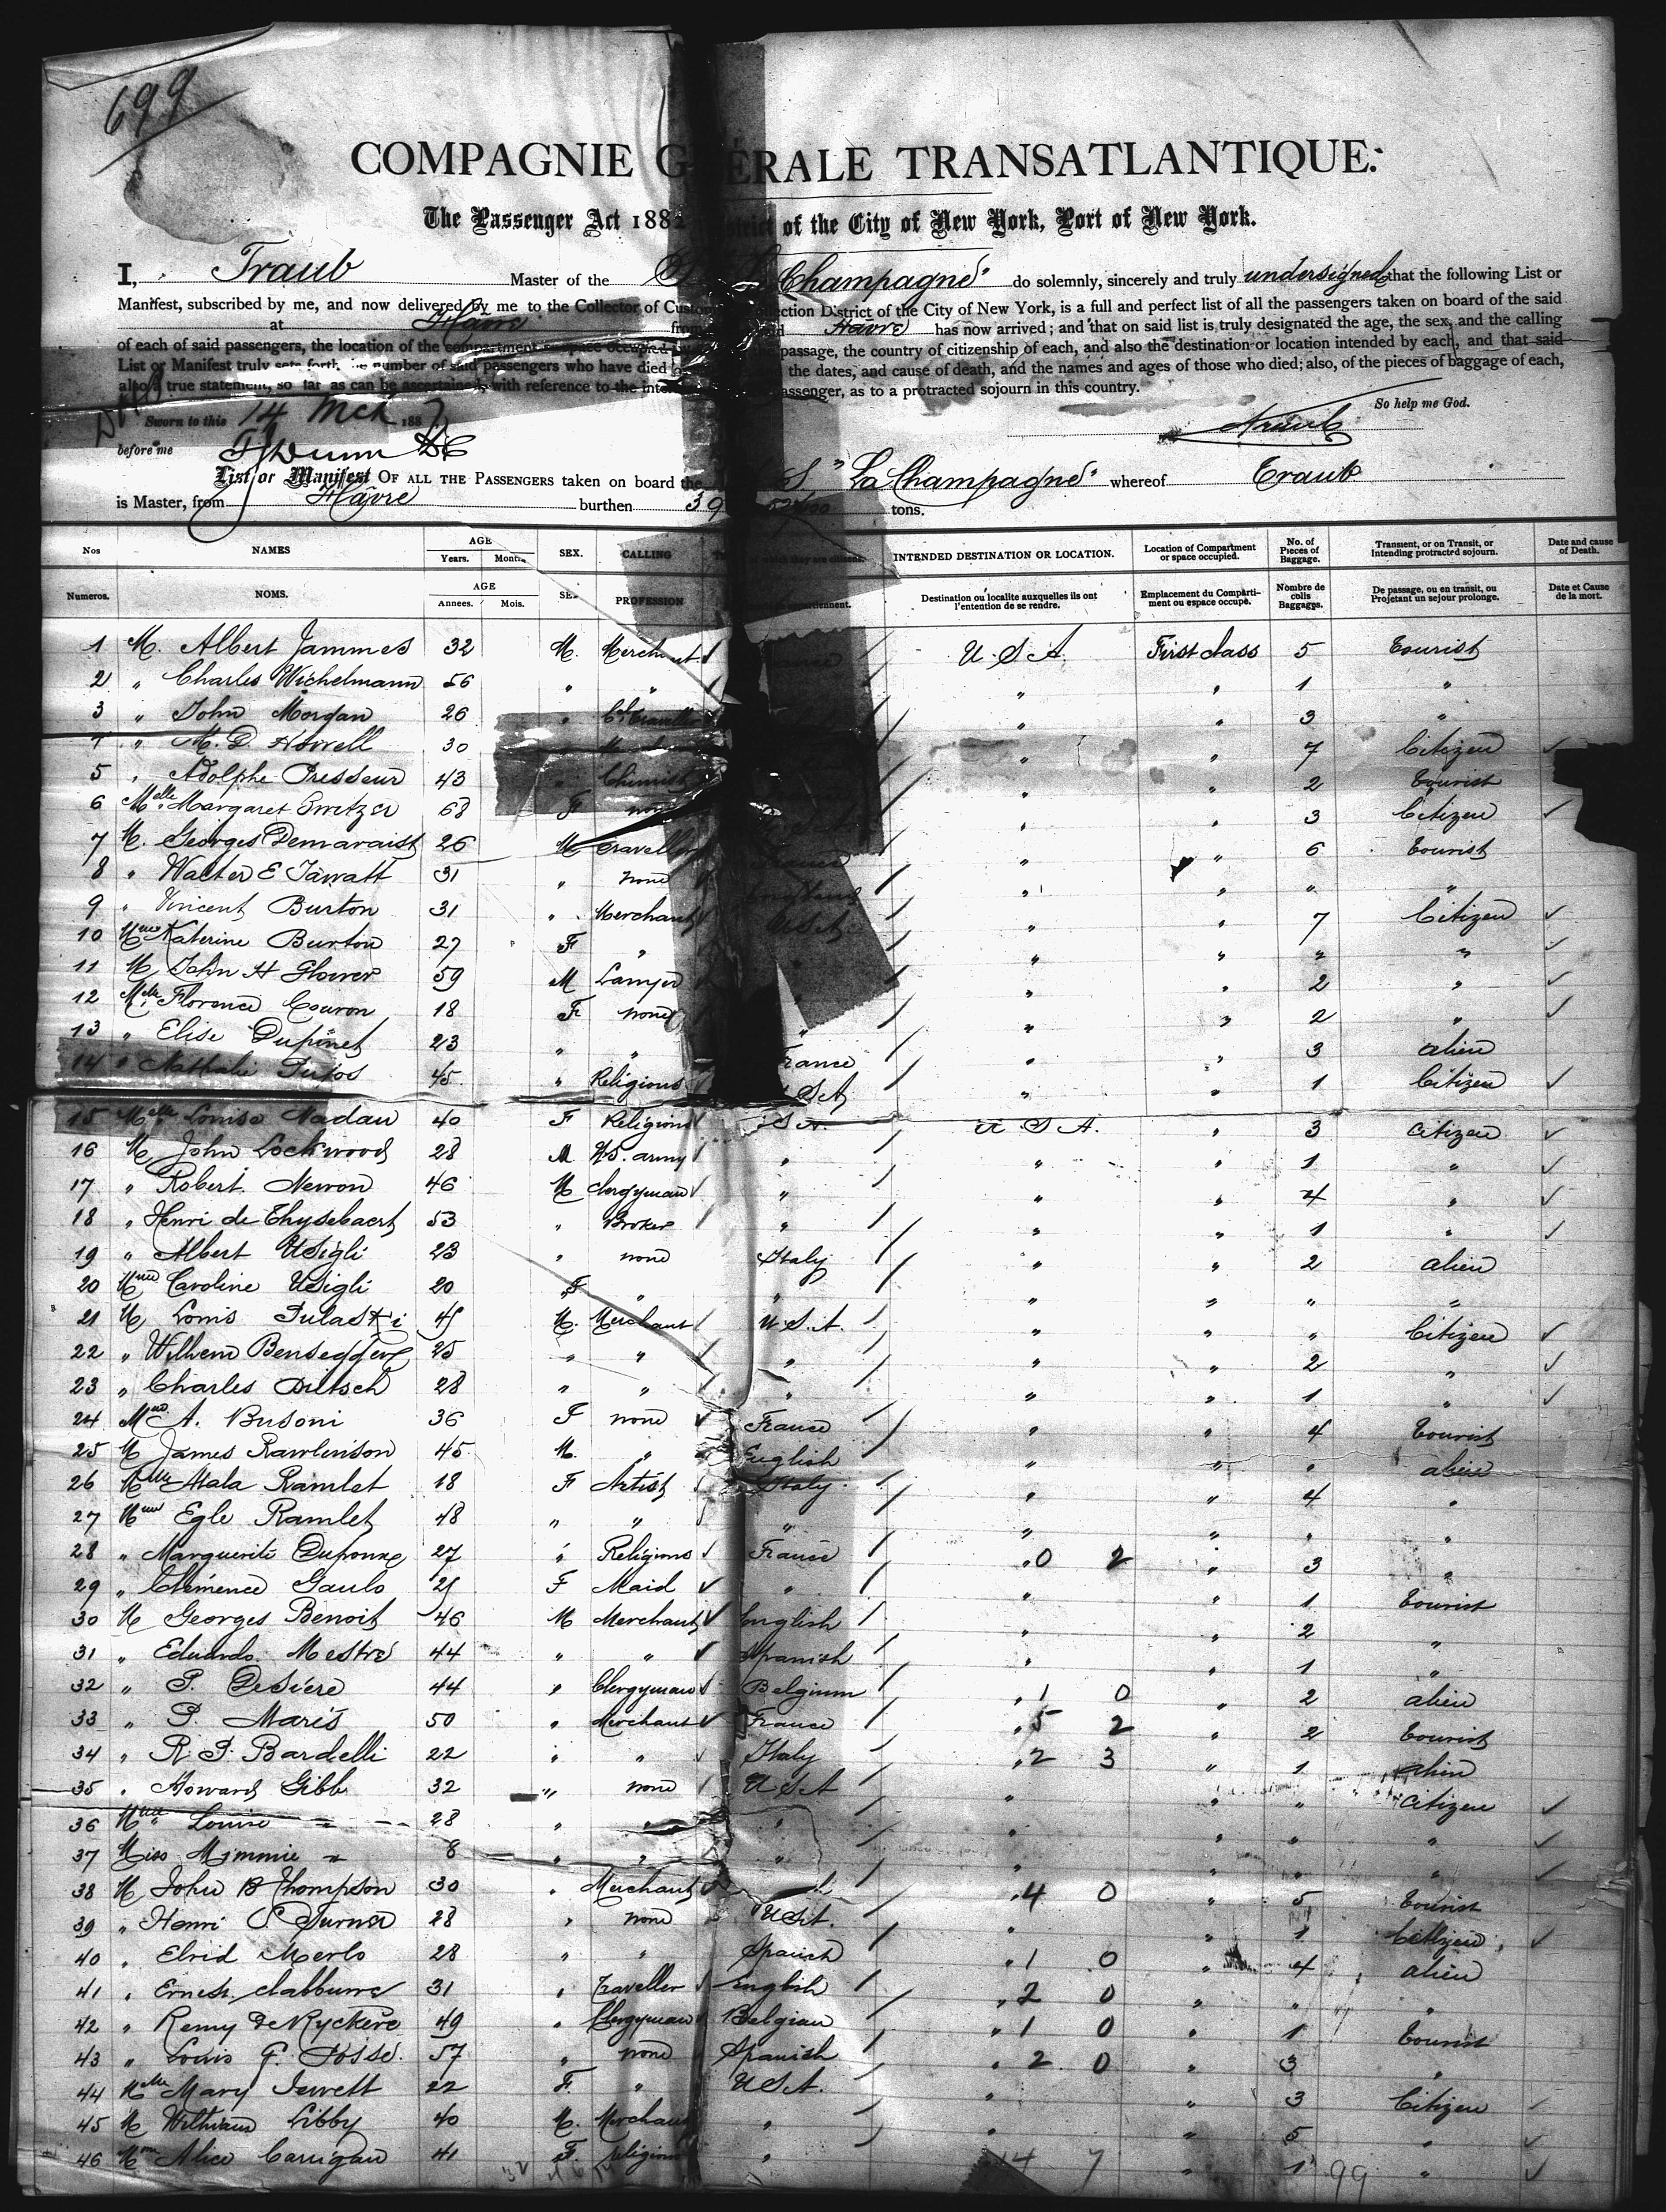 699
COMPAGNIE G ÉRALE TRANSATLANTIQUE.
The Passenger Act 1882 strict of the City of New York, Port of New York.
I, Traub Master of the Champagne" do solemnly, sincerely and truly undersigned that the following List or
Manifest, subscribed by me, and now delivered by me to the Collector of Custo ection District of the City of New York, is a full and perfect list of all the passengers taken on board of the said
at Havre from Havre has now arrived; and that on said list is truly designated the age, the sex, and the calling
of each of said passengers, the location of the compartment or space occupied passage, the country of citizenship of each, and also the destination or location intended by each, and that said
List or Manifest truly sets forth number of said passengers who have died the dates, and cause of death, and the names and ages of those who died; also, of the pieces of baggage of each,
also a true statement, so far as can be ascertained, with reference to the inten assenger, as to a protracted sojourn in this country.
So help me God.
Sworn to this 14 Mch 1887
Traub
before me
List or Manifest OF ALL THE PASSENGERS taken on board the S "La Champagne" whereof Traub
is Master, from Havre burthen 39 tons.
Nos NAMES AGE Years. Months SEX. CALLING of which they are citizens. INTENDED DESTINATION OR LOCATION. Location of Compartment or space occupied. No. of Pieces of Baggage. Transient, or on Transit, or Intending protracted sojourn. Date and cause of Death.
Numeros. NOMS. AGE Annees. Mois. SEX PROFESSION Destination ou localite auxquelles ils ont l'entention de se rendre. Emplacement du Comparti-ment ou espace occupé. Nombre de colis Baggages. De passage, ou en transit, ou Projetant un sejour prolonge. Date et Cause de la mort.
1 M. Albert Jammes 32 M. Merchant U.S.A. First class 5 tourist
2 " Charles Wichelmann 56 " " " " 1 "
3 " John Morgan 26 " Traveller " " 3 "
4 " M. D. Howell 30 " " 7 Citizen
5 " Adolphe Presseur 43 " Chemist " " 2 tourist
6 Melle Margaret Switzer 68 F none " " 3 Citizen
7 M. Georges Demaraist 26 M traveller " " 6 tourist
8 " Walter E Jarratt 31 " none " " " "
9 " Vincent Burton 31 " Merchant U.S.A. " " 7 Citizen
10 Mme Katerine Burton 27 F " " " " "
11 M John H Glover 59 M Lawyer " " 2 "
12 Melle Florence Couron 18 F none " " 2 "
13 " Elise Duponet 23 " " France " " 3 alien
14 " Nathalie Pujos 45 " Religious S A " " 1 Citizen
15 Melle Louise Nadau 40 F Religious S A. U S A. " 3 Citizen
16 M John Lockwood 28 M U.S. army " " " 1 "
17 " Robert Newon 46 M Clergyman " " " 4 "
18 " Henri de Thysebaert 53 " Broker " " " 1 "
19 " Albert Usigli 23 " none Italy " " 2 alien
20 Mme Caroline Usigli 20 F " " " " " "
21 M Louis Pulaski 45 M. Merchant U.S.A. " " " Citizen
22 " Wilhem 25 " " " " " 2 "
23 " Charles Dietsch 28 " " " " " 1 "
24 Mme A. Busoni 36 F none France " " 4 tourist
25 M James Rawlinson 45 M. " English " " " alien
26 Melle Atala Ramlet 18 F Artist Italy " " 4 "
27 Mme Egle Ramlet 48 " " " " " " "
28 " Marguerite Dupouxe 27 " Religious France " 0 2 " 3 "
29 " Clémence Gaulo 25 F Maid " " " 1 tourist
30 M Georges Benoit 46 M Merchant English " " 2 "
31 " Eduardo Mestre 44 " " Spanish " " 1 "
32 " P. Desiere 44 " Clergyman Belgium " 1 0 " 2 alien
33 " P. Maris 50 " Merchant France " 5 2 " 2 tourist
34 " R. P. Bardelli 22 " " Italy " 2 3 " 1 alien
35 " Howard Gibb 32 " none U S A " " " citizen
36 Mme Louise " 28 " " " " " " "
37 Miss Mimmie " 8 " " " " " " "
38 M John B Thompson 30 " Merchant " 4 0 " 5 tourist
39 " Henri S. Surner 28 " none U.S.A. " " 1 Citizen
40 " Elvid Merlo 28 " " Spanish " 1 0 " 4 alien
41 " Ernest Clabburne 31 " traveller English " 2 0 " " "
42 " Remy De Ryckere 49 " Clergyman Belgian " 1 0 " 1 tourist
43 " Louis F. Posse 57 " none Spanish " 2 0 " 3 "
44 Melle Mary Jewett 22 F. " U S A. " " 3 Citizen
45 M William Libby 40 M. Merchant " " " 5 "
46 Mme Alice Carrigan 41 F. religious " 14 7 " 1 99 "